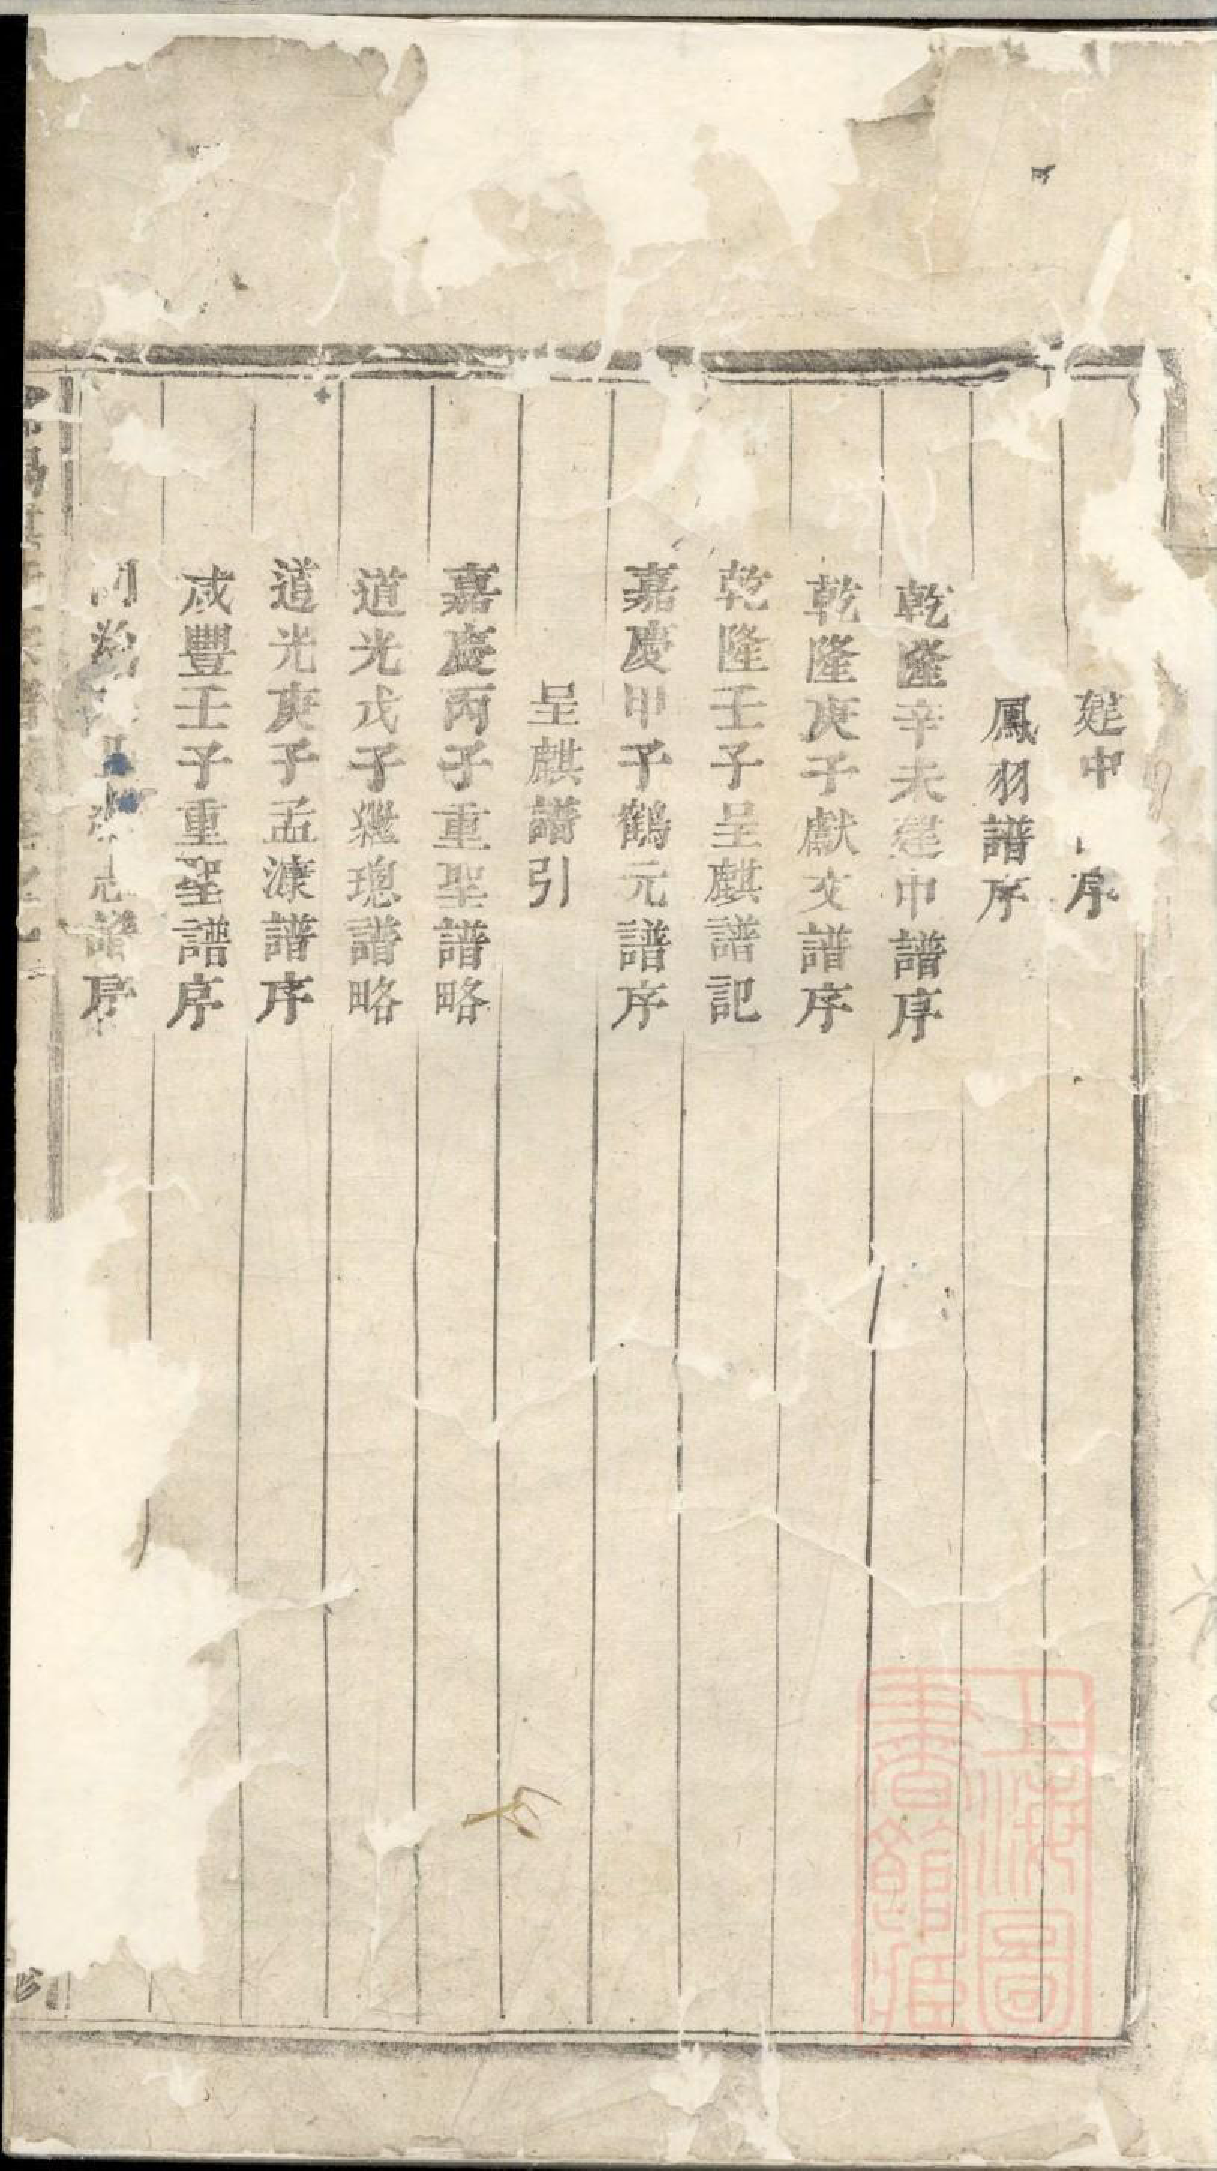 建中 序
鳳羽譜序
乾隆辛未建中譜序
乾隆庚子獻文譜序
乾隆壬子呈麒譜記
嘉慶甲子鶴元譜序
呈麒譜引
嘉慶丙子重聖譜略
道光戊子繼璁譜略
道光庚子孟濂譜序
咸豐壬子重聖譜序
譜序
上海圖書館藏